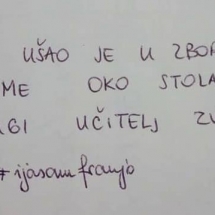 UŠAO JE U ZBOR
ME OKO STOLA
UČITELJ
#ijasamfranjo